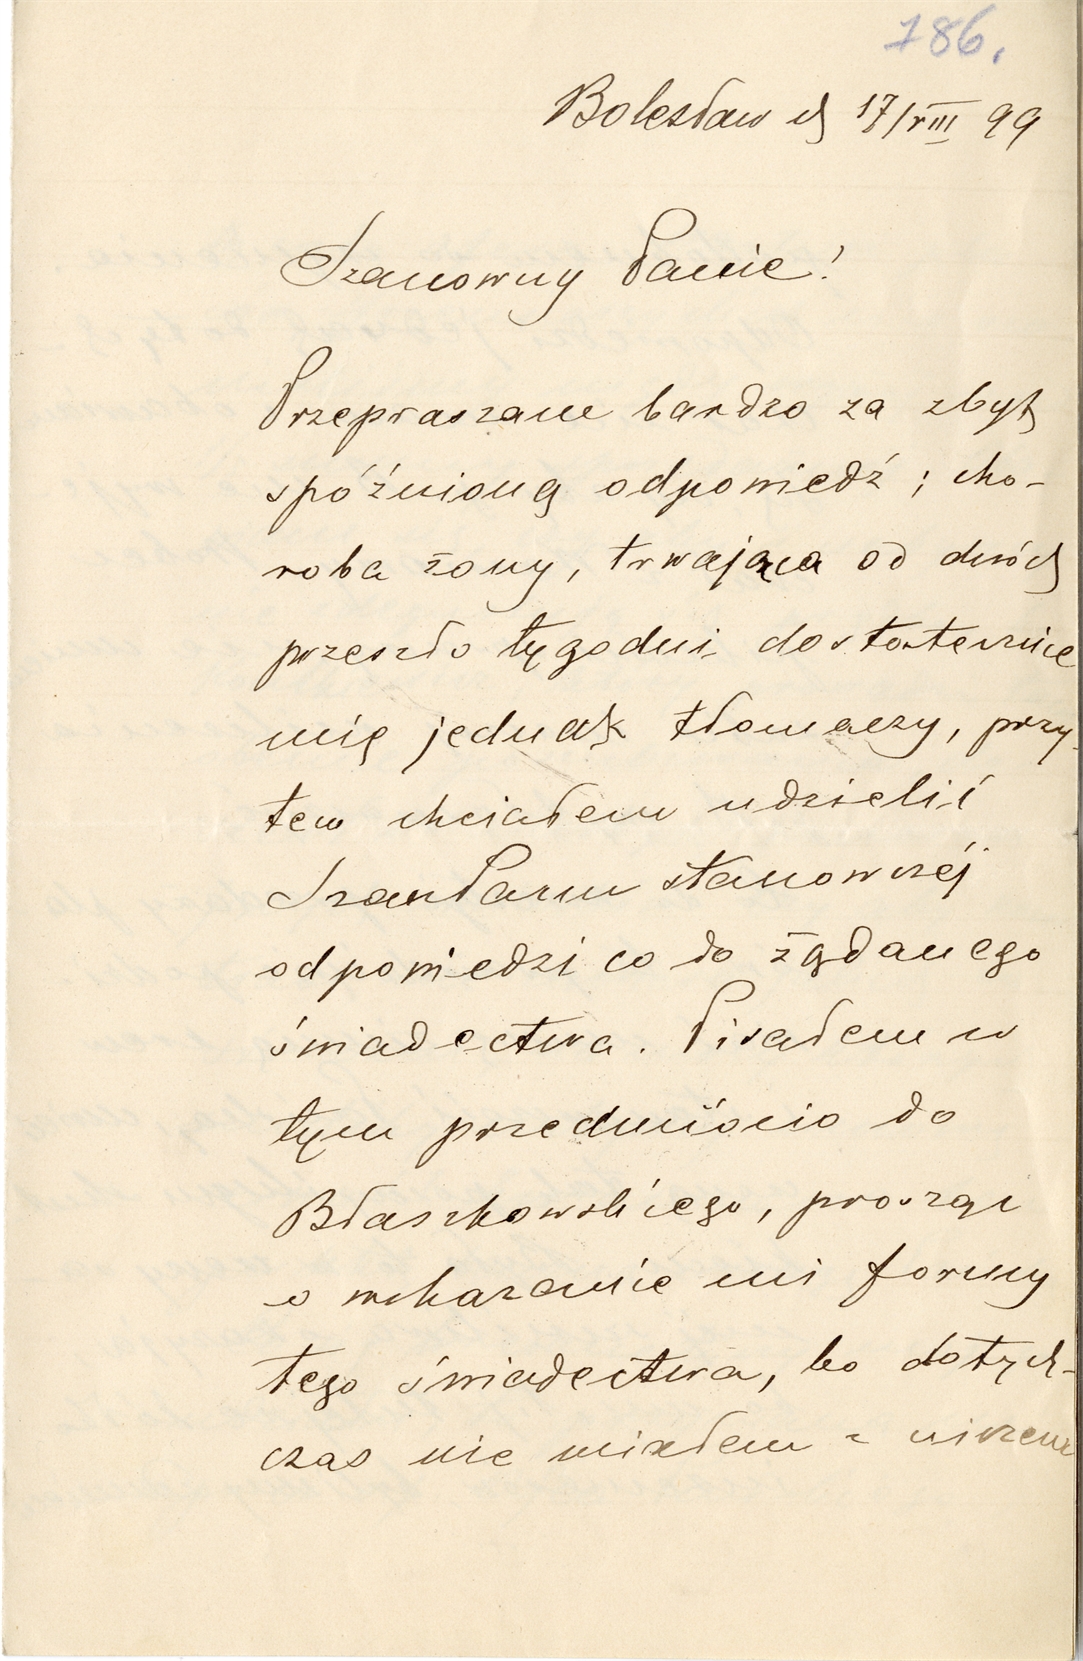 186.
Bolesław d 17/VIII 99
Szanowny Panie!
Przepraszam bardzo za zbyt
spóźnioną odpowiedź; cho-
roba żony, trwająca od dwóch
przeszło tygodni dostatecznie
mię jednak tłomaczy, przy-
tem chciałem udzielić
Szan Panu stanowczéj
odpowiedzi co do żądanego
świadectwa. Pisałem w
tym przedmiocie do
Błaszkowskiego, prosząc
o wskazanie mi formy
tego świadectwa, bo dotych-
czas nie miałem z niczem